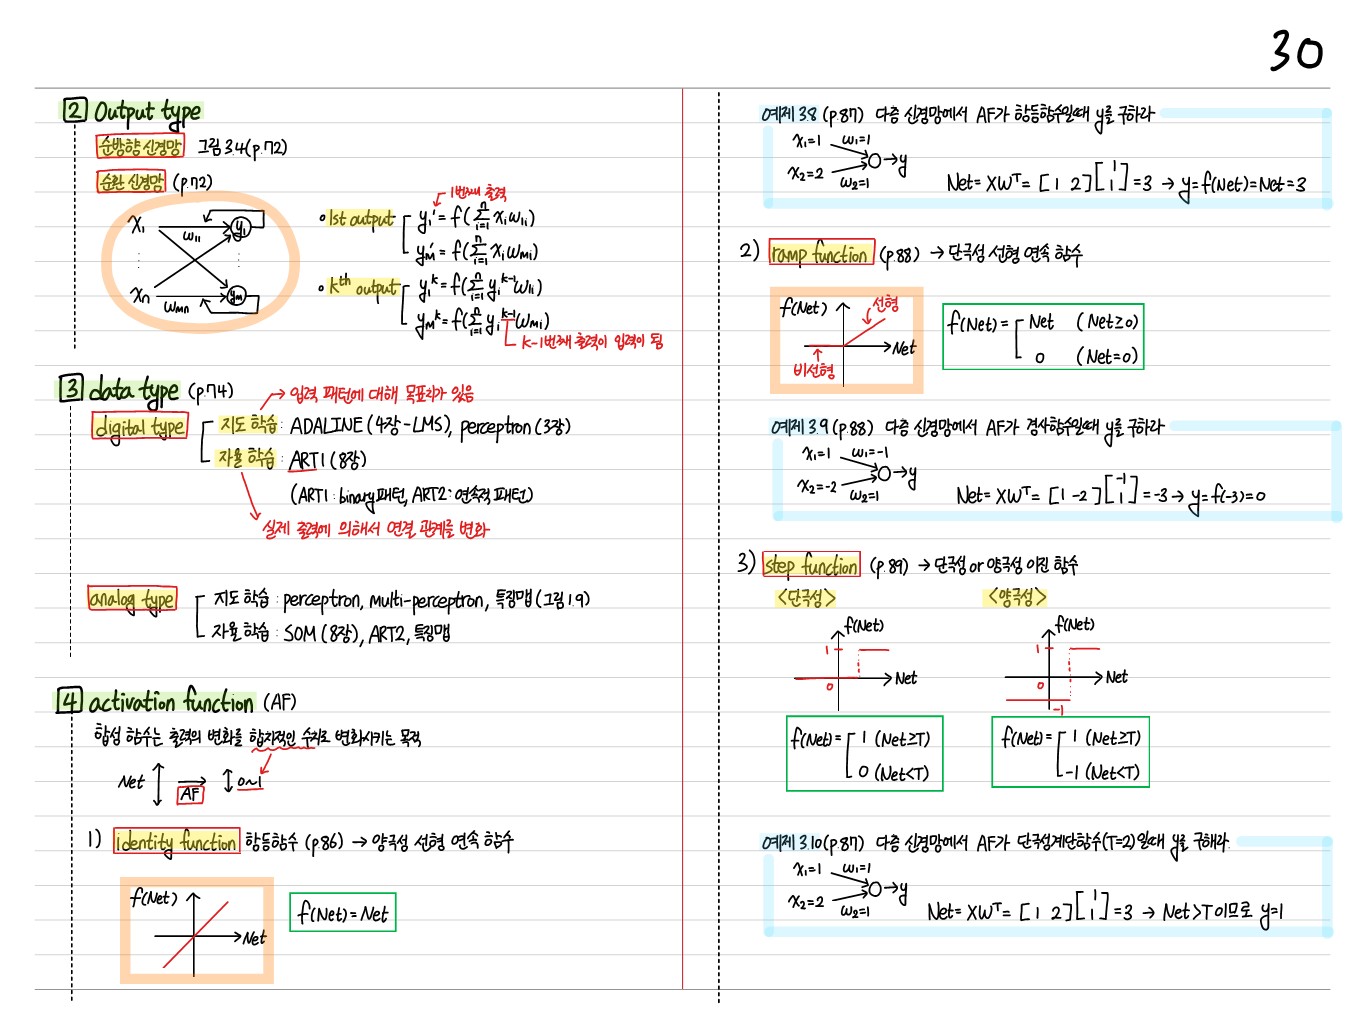 30
2 Output type
순방향 신경망 그림 3.4(p.72)
순환 신경망 (p.72)
x₁ w₁₁ y₁
xn wmn ym
1번째 출력
• 1st output y₁' = f(Σⁿᵢ₌₁ xᵢw₁ᵢ)
yM' = f(Σⁿᵢ₌₁ xᵢwMᵢ)
• Kth output y₁ᵏ = f(Σⁿᵢ₌₁ yᵢᵏ⁻¹w₁ᵢ)
yMᵏ = f(Σⁿᵢ₌₁ yᵢᵏ⁻¹wMᵢ)
k-1번째 출력이 입력이 됨
3 data type (p.74)
→ 입력 패턴에 대해 목표치가 있음
digital type 지도 학습 : ADALINE (4장-LMS), perceptron (3장)
자율 학습 : ART1 (8장)
(ART1 : binary패턴, ART2 : 연속적 패턴)
실제 출력에 의해서 연결 관계를 변화
analog type 지도 학습 : perceptron, multi-perceptron, 특징맵 (그림 1.9)
자율 학습 : SOM (8장), ART2, 특징맵
4 activation function (AF)
합성 함수는 출력의 변화를 합치적인 수치로 변화시키는 목적
Net ↕ → AF ↕ 0~1
1) identity function 항등함수 (p.86) → 양극성 선형 연속 함수
f(Net)
Net
f(Net) = Net
예제 3.8 (p.87) 다층 신경망에서 AF가 항등함수일때 y를 구하라
x₁=1 w₁=1
x₂=2 w₂=1 → y
Net = XWᵀ = [1 2][1 1] = 3 → y = f(Net) = Net = 3
2) ramp function (p.88) → 단극성 선형 연속 함수
f(Net) 선형
Net
비선형
f(Net) = Net (Net≥0)
0 (Net=0)
예제 3.9 (p.88) 다층 신경망에서 AF가 경사함수일때 y를 구하라
x₁=1 w₁=-1
x₂=-2 w₂=1 → y
Net = XWᵀ = [1 -2][-1 1] = -3 → y = f(-3) = 0
3) step function (p.89) → 단극성 or 양극성 이진 함수
<단극성> <양극성>
f(Net) 1 0 Net
f(Net) 1 0 -1 Net
f(Net) = 1 (Net≥T)
0 (Net<T)
f(Net) = 1 (Net≥T)
-1 (Net<T)
예제 3.10 (p.87) 다층 신경망에서 AF가 단극성계단함수(T=2)일때 y를 구해라.
x₁=1 w₁=1
x₂=2 w₂=1 → y
Net = XWᵀ = [1 2][1 1] = 3 → Net>T이므로 y=1